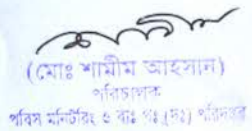 (মোঃ শামীম আহসান)
পরিচালক
পবিস মনিটরিং ও ব্যঃ পঃ (দঃ) পরিদপ্তর